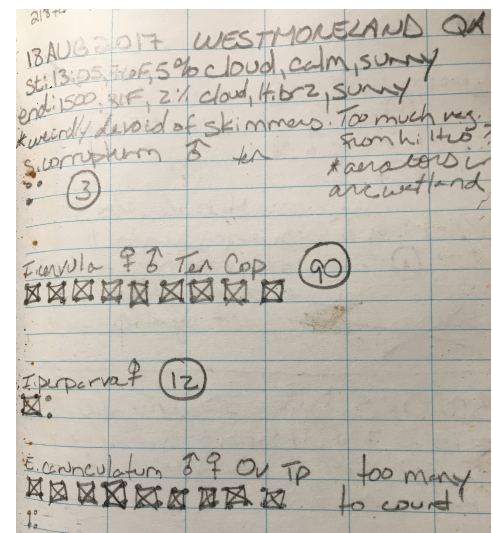 18 AUG 2017 WESTMORELAND QA
St: 13:05, F, 5% cloud, calm, sunny
end: 1500. 81F, 2% cloud, lt. brz, sunny
*weirdly devoid of skimmers. Too much veg.
from hi H2O?
S. corruptum ♂ ten
*aerators in
arc wetland
3
I. cervula ♀ ♂ Ten Cop 90
I. perparva ♀ 12
E. carunculatum ♂ ♀ Ov TP too many
to count!